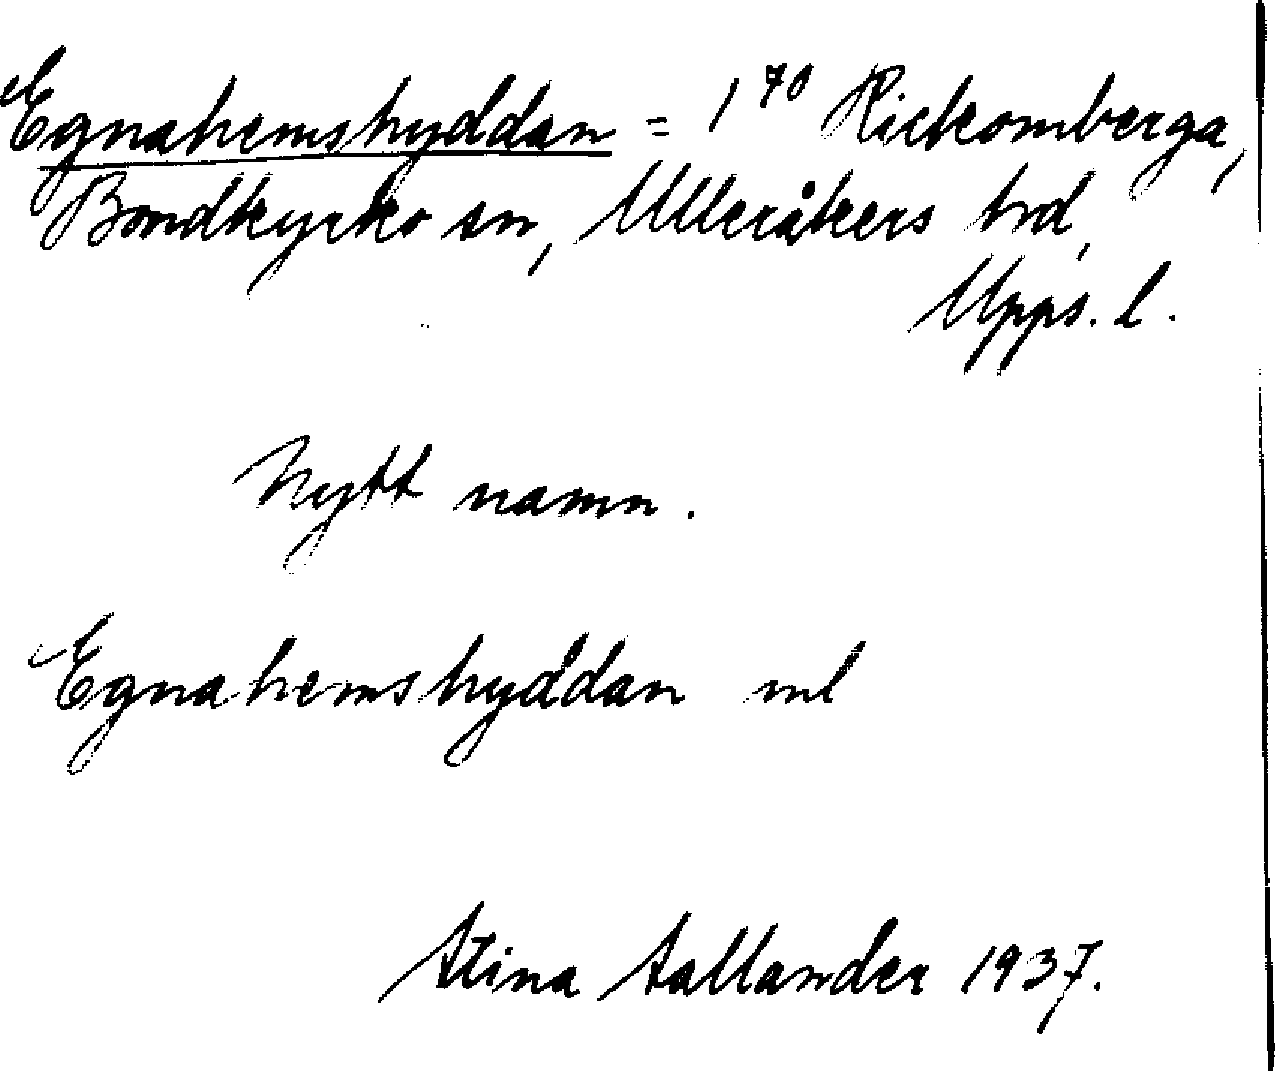 Egnahemshyddan = 1⁷⁰ Rickomberga,
Bondkyrko sn, Ulleråkers hd,
Upps. l.
Nytt namn.
Egnahemshyddan ml
Stina Sallander 1937.